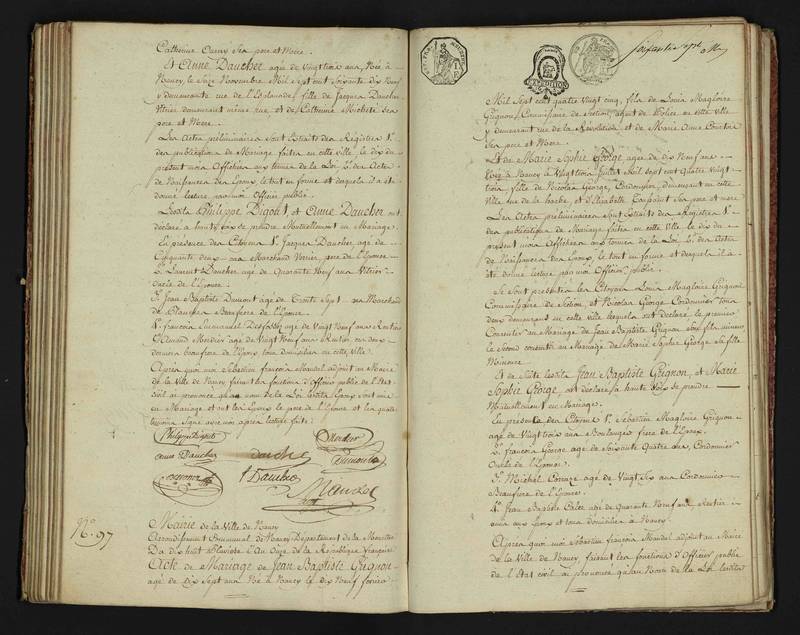 Catherine Oudry Ses pere et Mere.
Et Anne Daucher agée de Vingt trois ans, Née à
Nancy, le Seize Novembre Mil Sept cent Soixante dix Neuf
y demeurante rue de l'Esplanade, fille de Jacques Daucher
Vitrier demeurant même rue, et de Catherine Michot Ses
pere et Mere.
Les Actes préliminaires sont Extraits des Registres 1°
des publications de Mariage faites en cette ville le dix du
présent mois Affichées aux termes de la Loi, 2° des Actes
de Naissances des Epoux, le tout en forme et desquels il a été
donné lecture par moi Officier public.
Lesdits Philippe Digout, et Anne Daucher ont
déclaré à haute voix se prendre Mutuellement en Mariage.
En présence des Citoyens 1° Jacques Daucher, agé de
Cinquante deux ans Marchand Verrier, pere de l'Epouse
2° Laurent Daucher agé de Quarante Neuf ans Vitrier
Oncle de l'Epouse
3° Jean Baptiste Dumont agé de Trente Sept ans Marchand
de Beaufrere de l'Epouse.
4° françois Emmanuel agé de Vingt Neuf ans Rentier
Mordier agé de Vingt Neuf ans Rentier
beaufrere de l'Epoux tous domiciliés en cette Ville.
Après quoi moi Sébastien françois Mandel adjoint au Maire
de la Ville de Nancy faisant les fonctions d'Officier public de l'Etat
Civil ai prononcé qu'au nom de la Loi lesdits Epoux sont unis
en Mariage et ont les Epoux le pere de l'Epouse et les quatre
témoins Signé avec moi après lecture faite.
Philippe Digout
Mordier
anne Daucher
daucher
Dumont
l Daucher
Mandel
N°. 97
Mairie de la Ville de Nancy
Arrondissement Communal de Nancy Département de la Meurthe
Du dix huit Pluviose l'An Onze de la République française
Acte de Mariage de Jean Baptiste Grignon
agé de Dix Sept ans Né à Nancy le dix Neuf fevrier
Mil Sept cent quatre Vingt cinq, fils de Louis Magloire
Grignon Commissaire de Section, agent de Police en cette ville
y demeurant rue de la Révolution et de Marie Anne
Ses pere et Mere.
Et de Marie Sophie George agée de dix Neuf ans
Née à Nancy le Vingt trois Juillet Mil Sept cent Quatre Vingt
trois, fille de Nicolas George, Cordonnier, demeurant en cette
Ville rue de la hache, et d'Elisabeth Ses pere et mere
Les Actes préliminaires sont Extraits des Registres 1°
des publications de Mariage faites en cette Ville le dix du
présent mois Affichées aux termes de la Loi, 2° des Actes
de Naissances des Epoux, le tout en forme et desquels il a
été donné lecture par moi Officier public.
Se sont présentés les Citoyens Louis Magloire Grignon
Commissaire de Section, et Nicolas George Cordonnier tous
deux demeurant en cette ville lesquels ont déclaré, le premier
Consentir au Mariage de Jean Baptiste Grignon son fils mineur,
le Second consentir au Mariage de Marie Sophie George sa fille
Mineure
Et de Suite lesdits Jean Baptiste Grignon, et Marie
Sophie George ont déclaré à haute Voix se prendre
Mutuellement en Mariage.
En présence des Citoyens 1° Sébastien Magloire Grignon
agé de Vingt trois ans Boulanger frere de l'Epoux.
2° françois George agé de Soixante Quatre ans, Cordonnier
Oncle de l'Epouse.
3° Michel agé de Vingt Six ans Cordonnier
Beaufrere de l'Epouse.
4° Jean Baptiste agé de Quarante Neuf ans Rentier
amis aux Epoux et tous domiciliés à Nancy.
Après quoi moi Sébastien françois Mandel adjoint au Maire
de la Ville de Nancy faisant les fonctions d'Officier public
de l'Etat civil ai prononcé qu'au Nom de la Loi lesdits